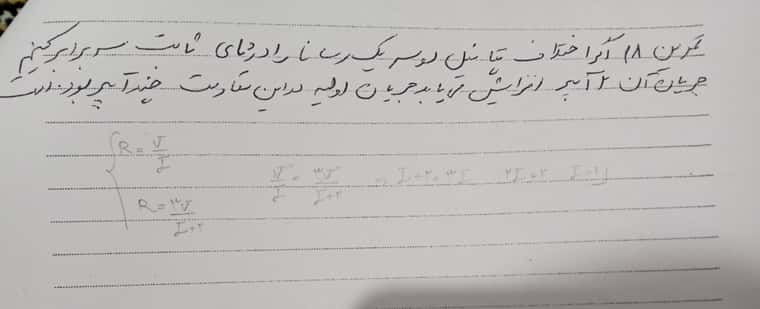 تمرین ۱۸ اگر اختلاف پتانسیل دو سر یک رسانا را در دمای ثابت سه برابر کنیم
جریان آن ۲ آمپر افزایش می‌یابد جریان اولیه در این مقاومت چند آمپر بوده است
R = V/I
V/I = ۳V/I+۲ = I+۲=۳I ۲I=۲ I=۱
R = ۳V/I+۲